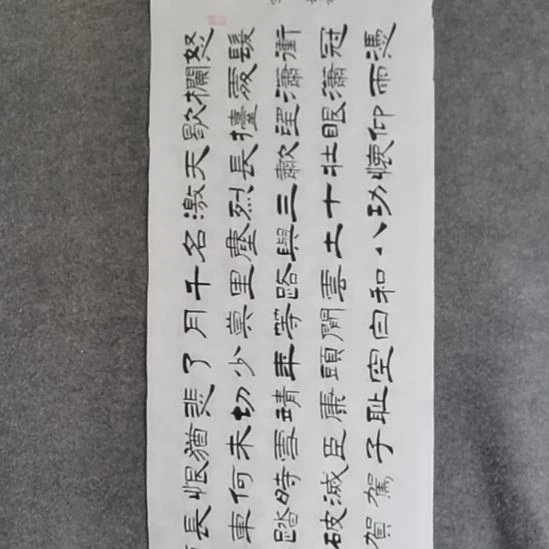 怒髮衝冠憑
欄處瀟瀟雨
歇擡望眼仰
天長嘯壯懷
激烈三十功
名塵與土八
千里路雲和
月莫等閒白
了少年頭空
悲切靖康恥
猶未雪臣子
恨何時滅駕
長車踏破賀